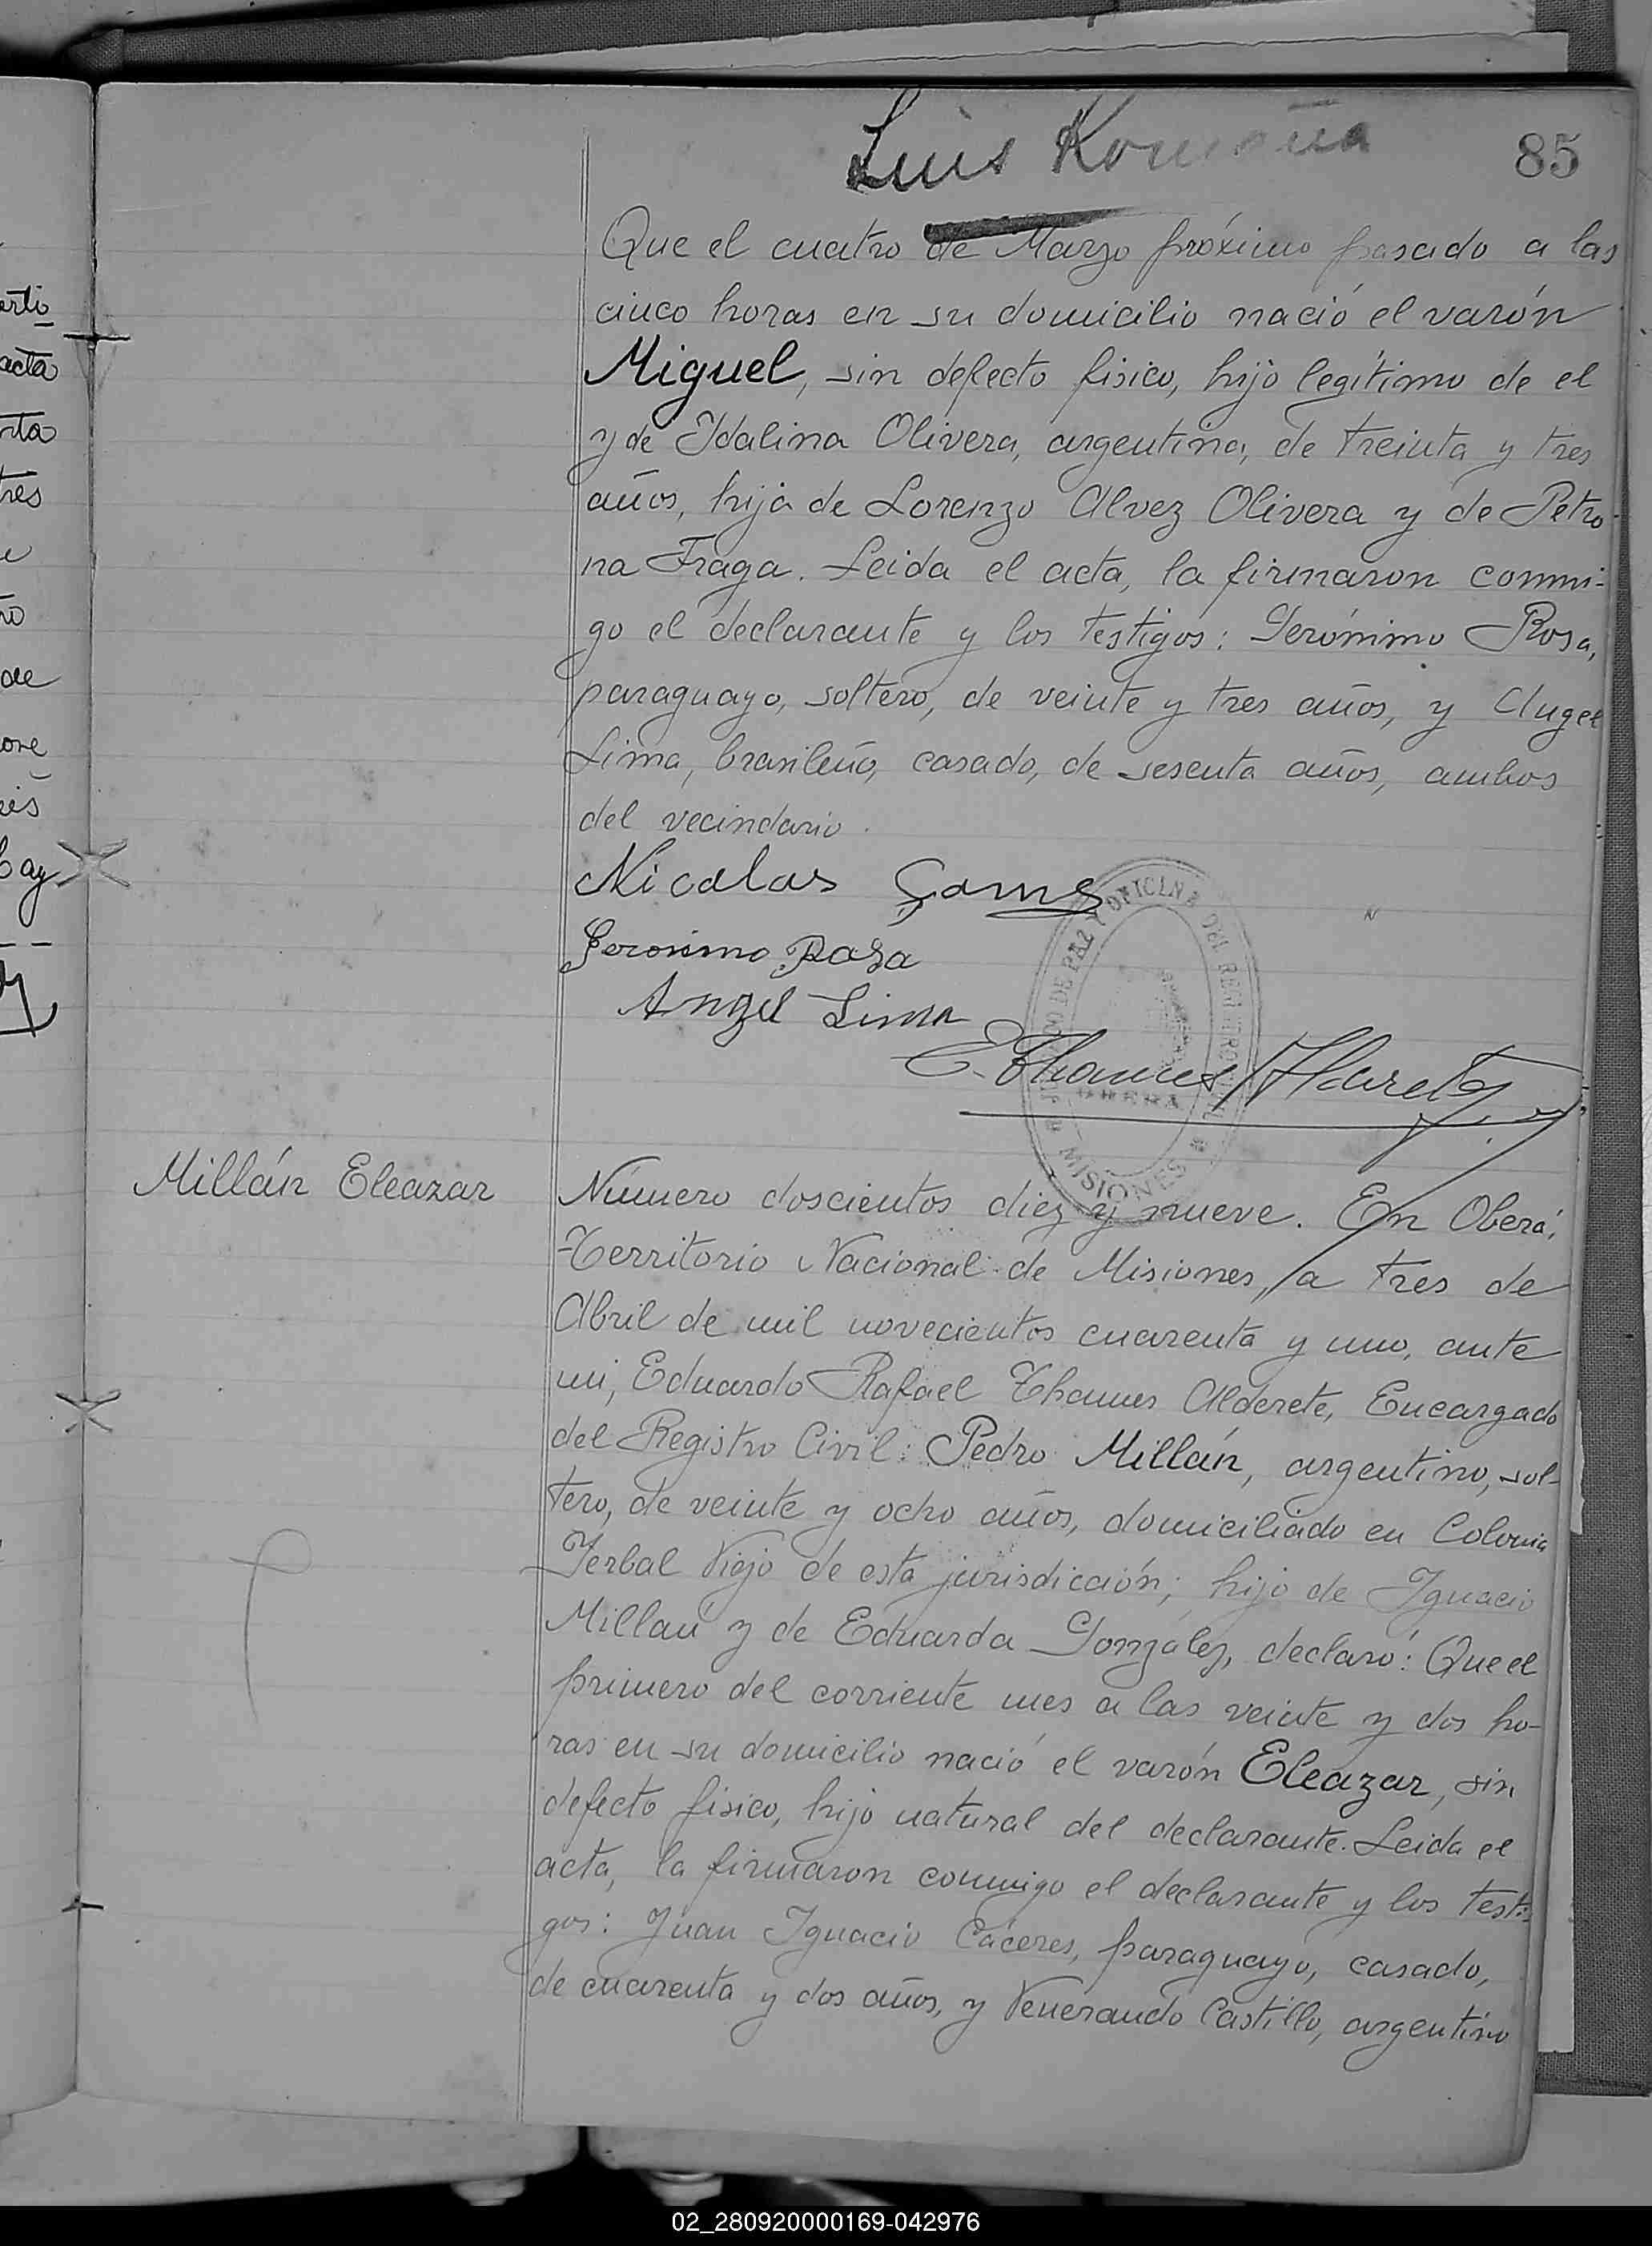 Luis
85
Que el cuatro de Marzo próximo pasado a las
cinco horas en su domicilio nació el varón
Miguel, sin defecto fisico, hijo legítimo de el
y de Ydalina Olivera, argentina, de treinta y tres
años, hija de Lorenzo Alvez Olivera y de Petro-
na Fraga. Leida el acta, la firmaron conmi-
go el declarante y los testigos: Gerónimo Rosa,
paraguayo, soltero, de veinte y tres años, y Angel
Lima, brasileño, casado, de sesenta años, ambos
del vecindario.
Nicolas
Geronimo Rosa
Angel Lima
E. Thames Alderete
JUZGADO DE PAZ Y OFICINA DEL REGISTRO CIVIL
OBERA
MISIONES
Millán Eleazar
Número doscientos diez y nueve. En Oberá,
Territorio Nacional de Misiones, a tres de
Abril de mil novecientos cuarenta y uno, ante
mi, Eduardo Rafael Thames Alderete, Encargado
del Registro Civil: Pedro Millán, argentino, sol-
tero, de veinte y ocho años, domiciliado en Colonia
Yerbal Viejo de esta jurisdicción; hijo de Ygnacio
Millán y de Eduarda González, declaró: Que el
primero del corriente mes a las veinte y dos ho-
ras en su domicilio nació el varón Eleazar, sin
defecto fisico, hijo natural del declarante. Leida el
acta, la firmaron conmigo el declarante y los testi-
gos: Juan Ygnacio Cáceres, paraguayo, casado,
de cuarenta y dos años, y Venerando Castillo, argentino
erti-
acta
rta
tres
de
ore
02_280920000169-042976